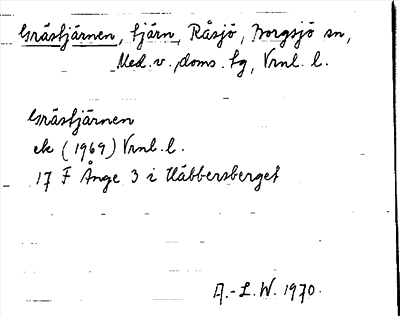 Grästjärnen, tjärn, Råsjö, Borgsjö sn,
Med. v. doms. tg, Vrnl. l.
Grästjärnen
ek (1969) Vrnl. l.
17 F Ånge 3 i Håbbersberget
A.-L.W. 1970.